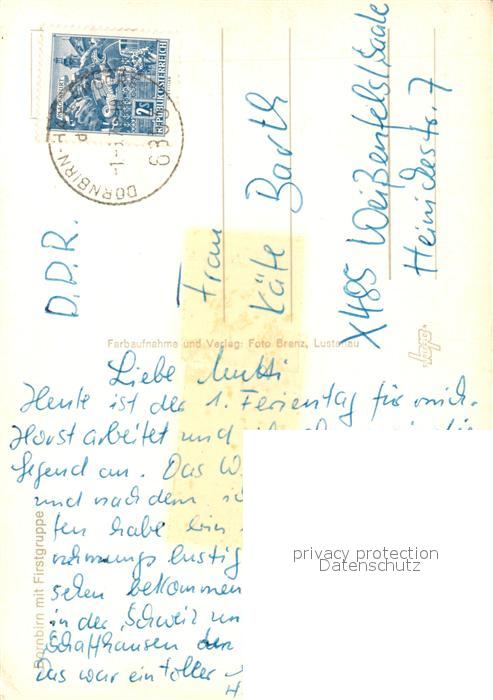 REPUBLIK ÖSTERREICH
2S
DORNBIRN
D.D.R.
Frau
Käte Barth
X485 Weißenfels/Saale
Heinestr. 7
Farbaufnahme und Verlag: Foto Branz, Lustenau
Dornbirn mit Firstgruppe
Liebe Mutti
Heute ist der 1. Ferientag für mich.
Horst arbeitet und
Gegend an. Das W
und nachdem
ten habe bin
nehmungslustig
sehen bekommen
in der Schweiz
Schaffhausen
Das war ein toller
privacy protection
Datenschutz